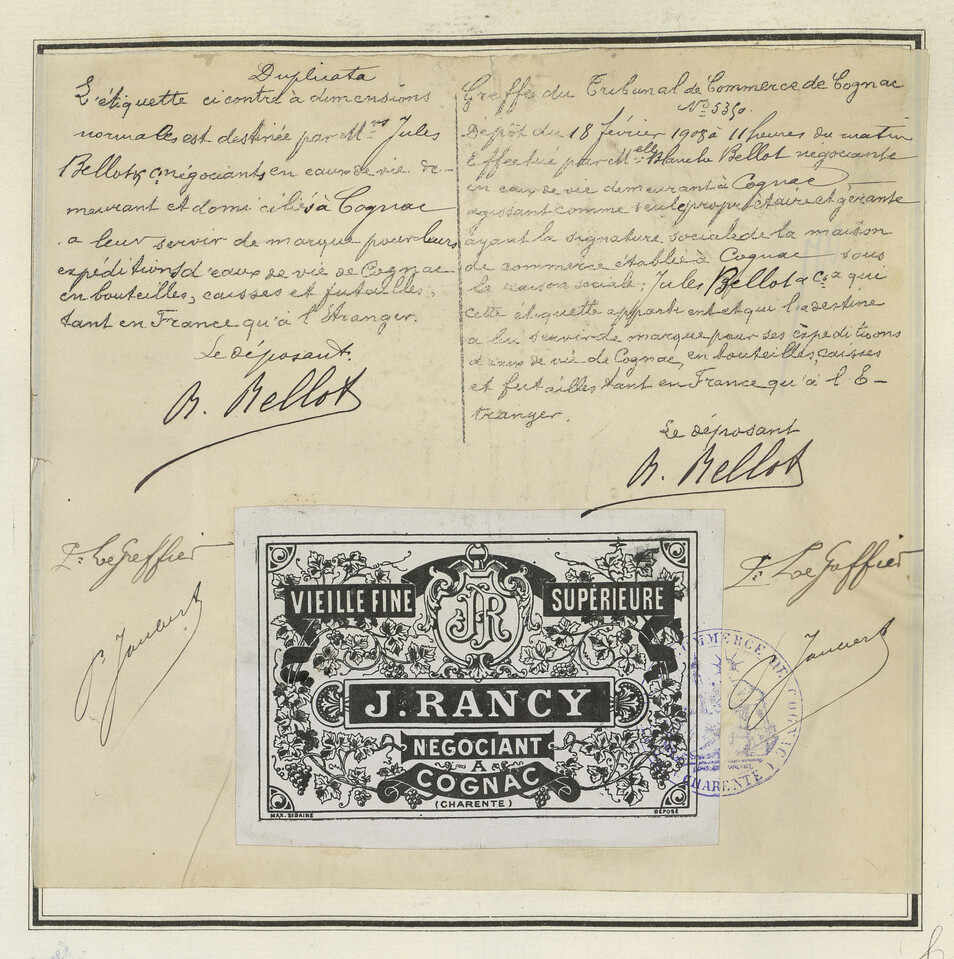 Duplicata
L'étiquette ci contre à dimensions
normales est destinée par Mrs Jules
Bellot & Co négociants, en eaux de vie de-
meurant et domiciliés à Cognac
a leur servir de marque pour leurs
expéditions d'eaux de vie de Cognac
en bouteilles, caisses et futailles,
tant en France qu'à l'étranger.
Le déposant.
B. Bellot
Greffe du Tribunal de Commerce de Cognac
No 5350.
Dépôt du 18 février 1905 à 11 heures du matin
Effectué par Melle Blanche Bellot négociante
en eaux de vie demeurant à Cognac
agissant comme seule propriétaire et gérante
ayant la signature sociale de la maison
de commerce établie à Cognac sous
la raison sociale: Jules Bellot & Co a qui
cette étiquette appartient et qui l'a destine
a lui servir de marque pour ses expéditions
d'eaux de vie de Cognac, en bouteilles, caisses
et futailles tant en France qu'à l'É-
tranger.
Le déposant
B. Bellot
Pr Le Greffier
P. Joubert
Pr Le Greffier
P. Joubert
JR
VIEILLE FINE SUPÉRIEURE
J. RANCY
NÉGOCIANT
A
COGNAC
(CHARENTE)
MAX. SIDAINE DÉPOSÉ
COMMERCE DE COGNAC
(CHARENTE)